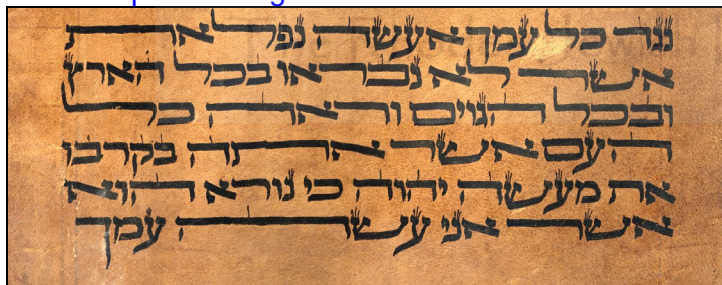 נגד כל עמך אעשה נפלאת
אשר לא נבראו בכל הארץ
ובכל הגוים וראה כל
העם אשר אתה בקרבו
את מעשה יהוה כי נורא הוא
אשר אני עשה עמך